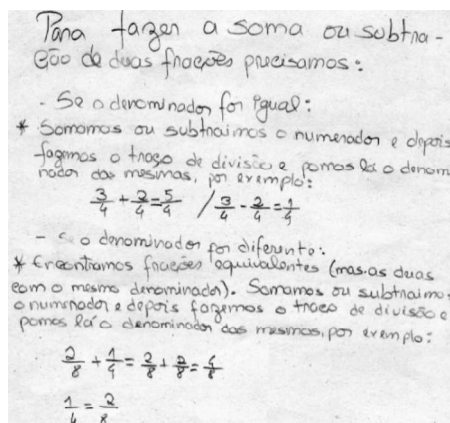 Para fazer a soma ou subtra-
ção de duas frações precisamos:
- Se o denominador for igual:
* Somamos ou subtraimos o numerador e depois
fazemos o traço de divisão e pomos lá o denomi
nador das mesmas, por exemplo:
3/4 + 2/4 = 5/4 / 3/4 - 2/4 = 1/4
- Se o denominador for diferente:
* Encontramos frações equivalentes (mas as duas
com o mesmo denominador). Somamos ou subtraimos
o numerador e depois fazemos o traço de divisão e
pomos lá o denominador das mesmas, por exemplo:
2/8 + 1/4 = 2/8 + 2/8 = 4/8
1/4 = 2/8